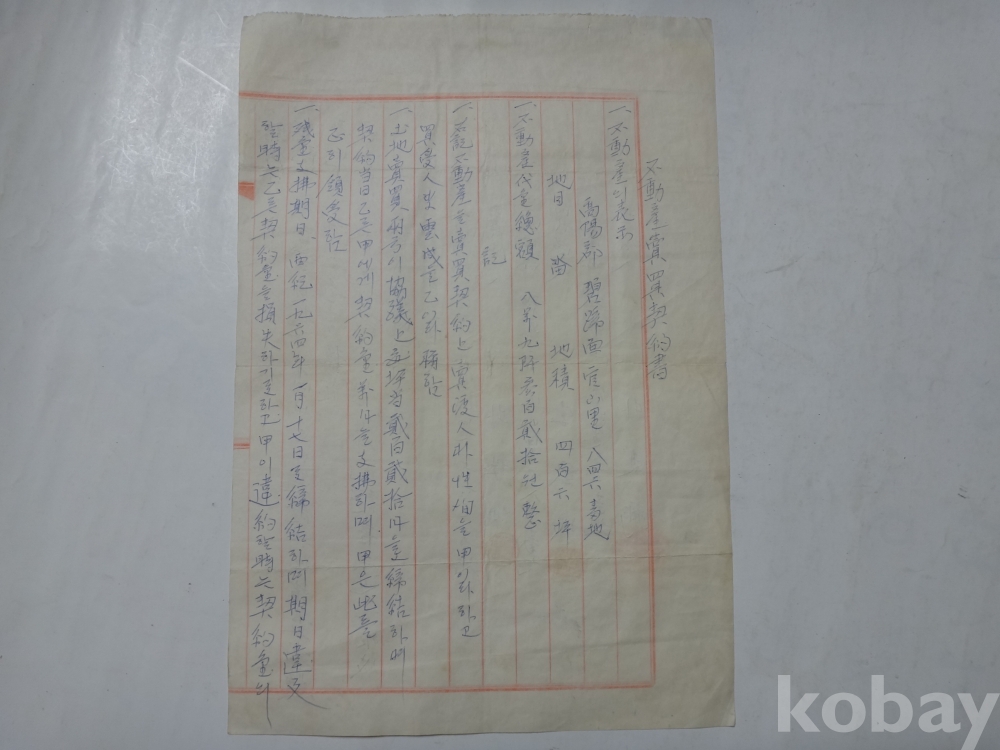 不動産賣買契約書
一. 不動産의 表示
高陽郡 碧蹄面 官山里 八四六番地
地目 畓 地積 四百六 坪
一. 不動産代金總額 八萬九阡參百貳拾원 整
記
一. 右記 不動産을 賣買契約上 賣渡人 을 甲이라하고
買受人 史雲 을 乙이라 稱함
一. 土地賣買 이 協議上 每坪当 貳百貳拾 을 締結하며
契約当日 乙은 甲에게 契約金 을 支拂하며 甲은 此를
正히 領受함
一. 残金支拂期日 西紀 一九六四年 一月十七日로 締結하며 期日違反
할時는 乙은 契約金을 損失하기로하고 甲이 違約할時는 契約金의
kobay